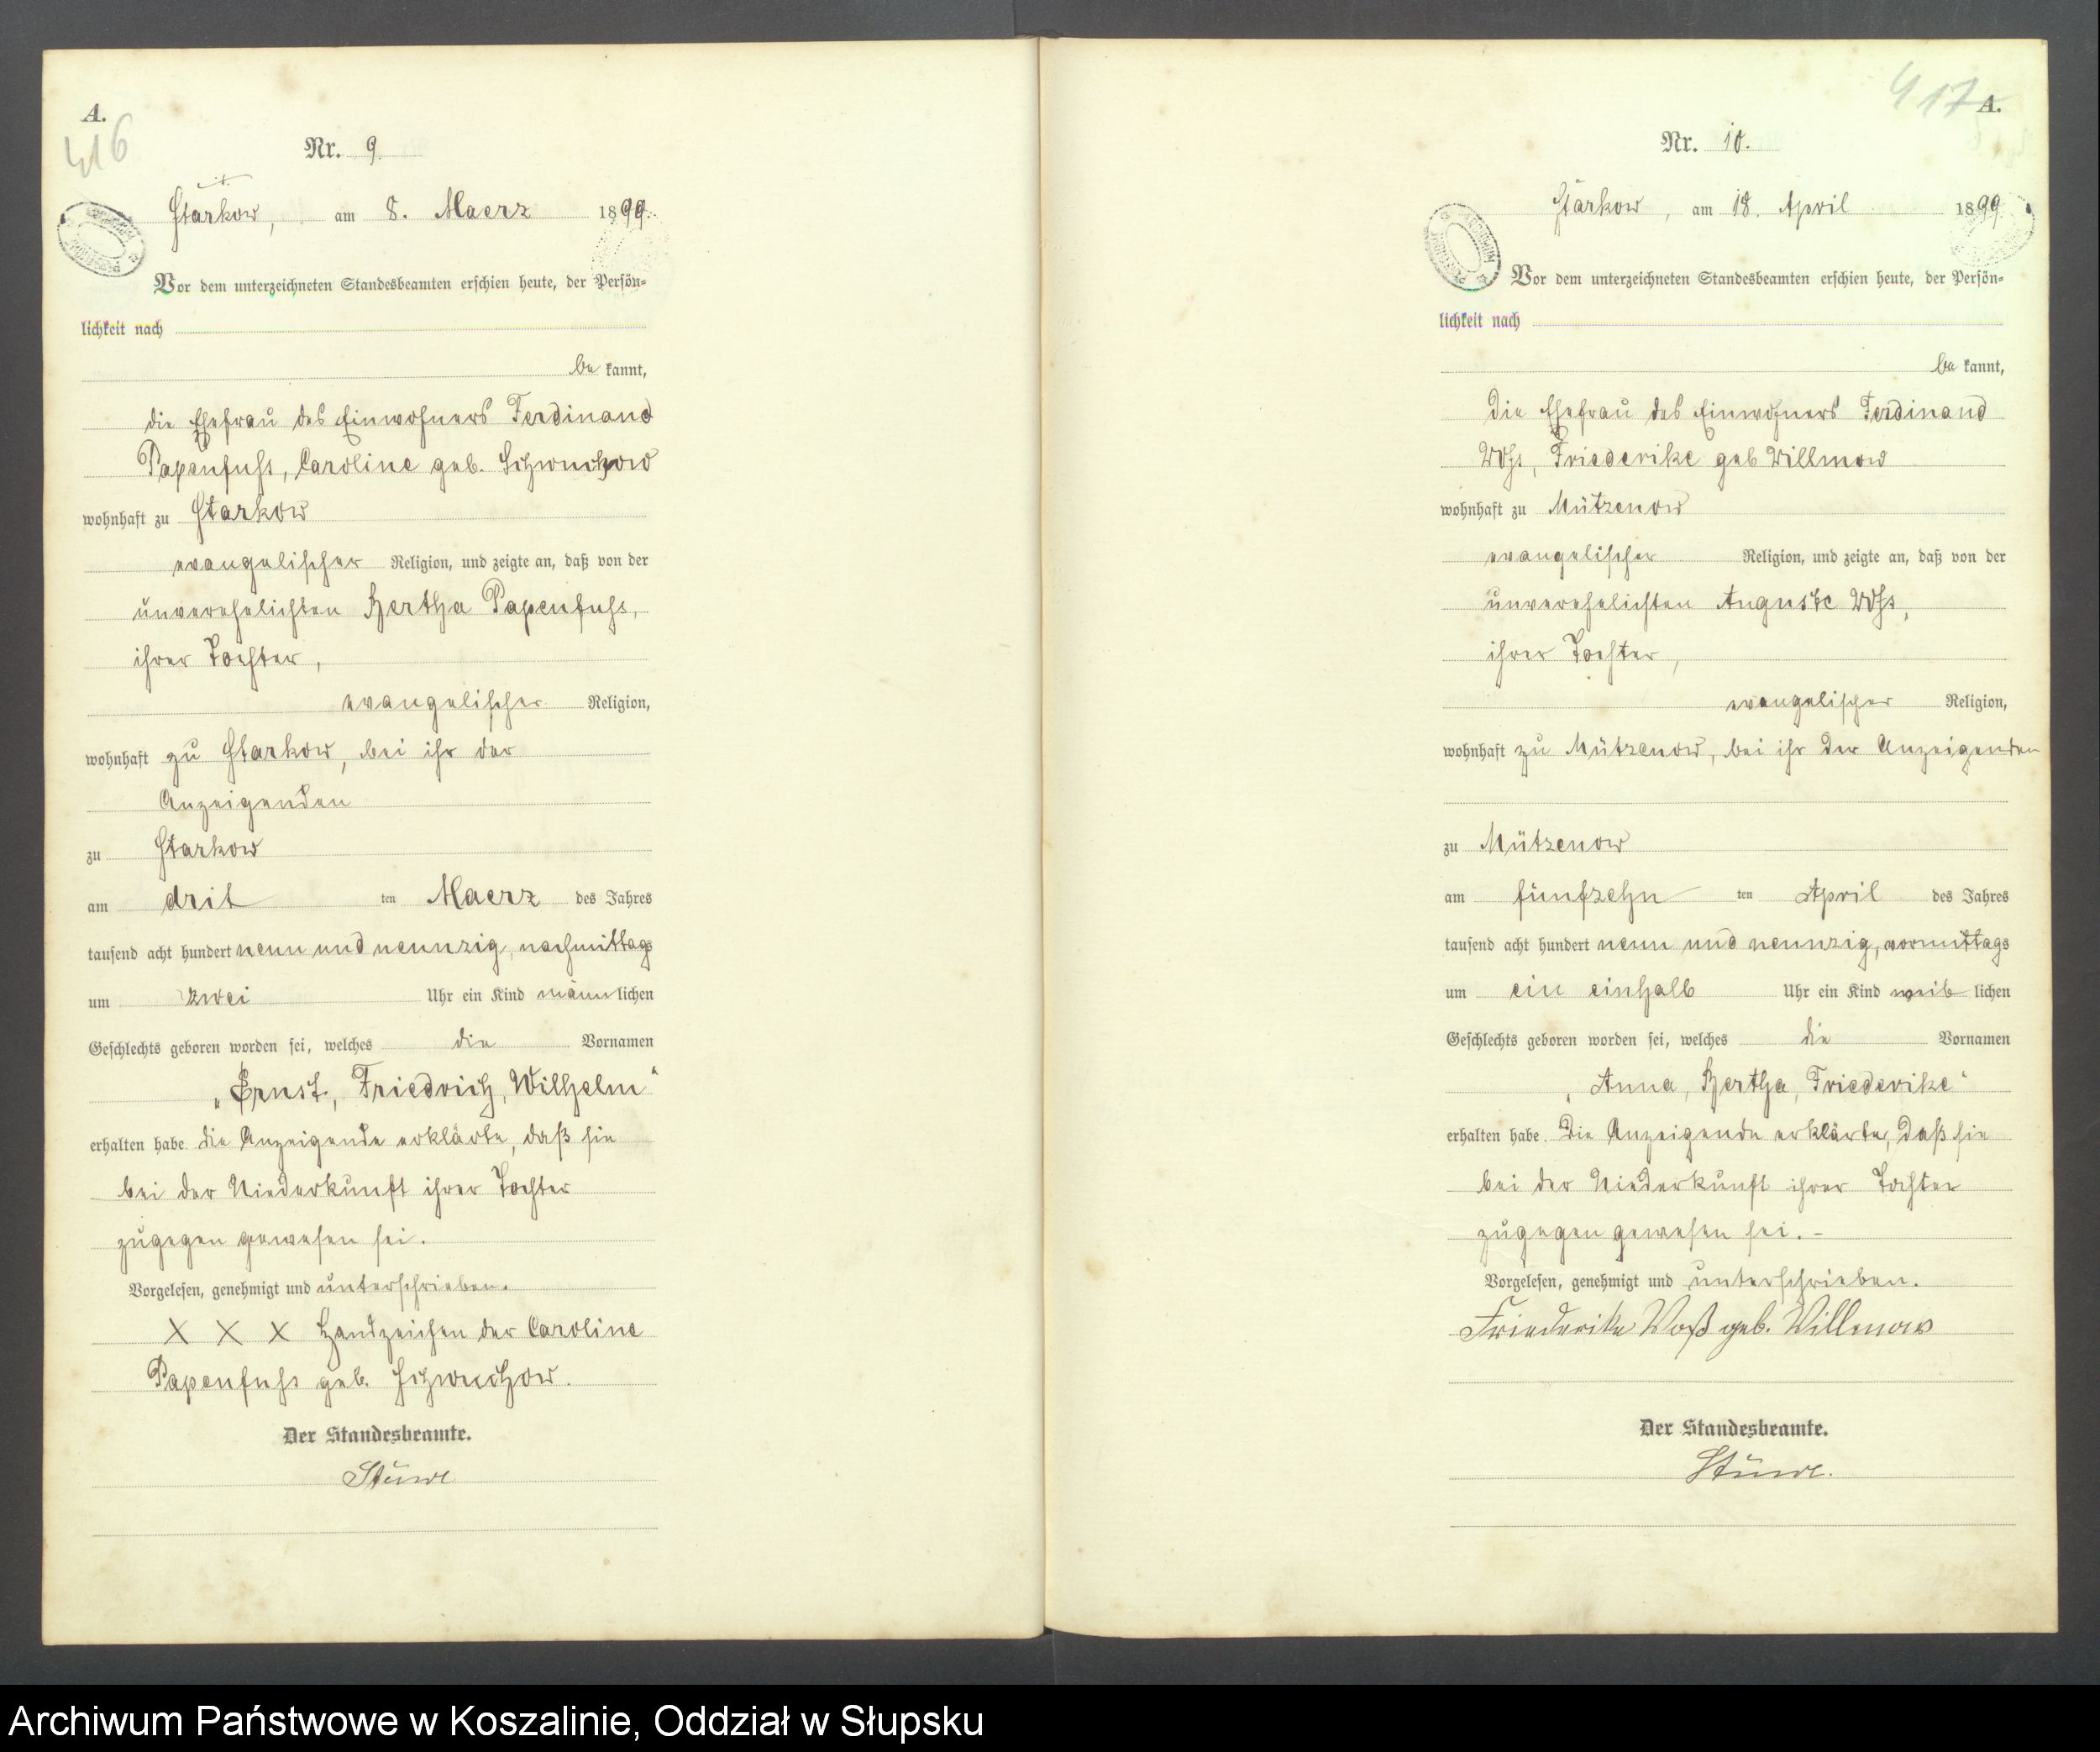 A.
416
Nr. 9.
Starkow, am 8. Maerz 1899.
Vor dem unterzeichneten Standesbeamten erschien heute, der Persön=
lichkeit nach
be kannt,
die Ehefrau des Einwohners Ferdinand
Papenfuhs, Caroline geb.
wohnhaft zu Starkow
evangelischer Religion, und zeigte an, daß von der
unverehelichten Bertha Papenfuhs,
ihrer Tochter,
evangelischer Religion,
wohnhaft zu Starkow, bei ihr der
Anzeigenden
zu Starkow
am drit ten Maerz des Jahres
tausend acht hundert neun und neunzig, nachmittags
um zwei Uhr ein Kind männlichen
Geschlechts geboren worden sei, welches die Vornamen
„Ernst, Friedrich, Wilhelm“
erhalten habe. die Anzeigende erklärte, daß sie
bei der Niederkunft ihrer Tochter
zugegen gewesen sei.
Vorgelesen, genehmigt und unterschrieben.
X X X Handzeichen der Caroline
Papenfuhs geb.
Der Standesbeamte.
Stüwe
417
A.
Nr. 10.
Starkow, am 18. April 1899.
Vor dem unterzeichneten Standesbeamten erschien heute, der Persön=
lichkeit nach
be kannt,
die Ehefrau des Einwohners Ferdinand
Vohs, Friederike geb Villmow
wohnhaft zu Mützenow
evangelischer Religion, und zeigte an, daß von der
unverehelichten Auguste Vohs,
ihrer Tochter,
evangelischer Religion,
wohnhaft zu Mützenow, bei ihr der Anzeigenden
zu Mützenow
am fünfzehn ten April des Jahres
tausend acht hundert neun und neunzig, vormittags
um ein einhalb Uhr ein Kind weib lichen
Geschlechts geboren worden sei, welches die Vornamen
„Anna, Bertha, Friederike“
erhalten habe. Die Anzeigende erklärte, daß sie
bei der Niederkunft ihrer Tochter
zugegen gewesen sei. -
Vorgelesen, genehmigt und unterschrieben.
Friederike Voß geb. Villmow
Der Standesbeamte.
Stüwe.
Archiwum Państwowe w Koszalinie, Oddział w Słupsku